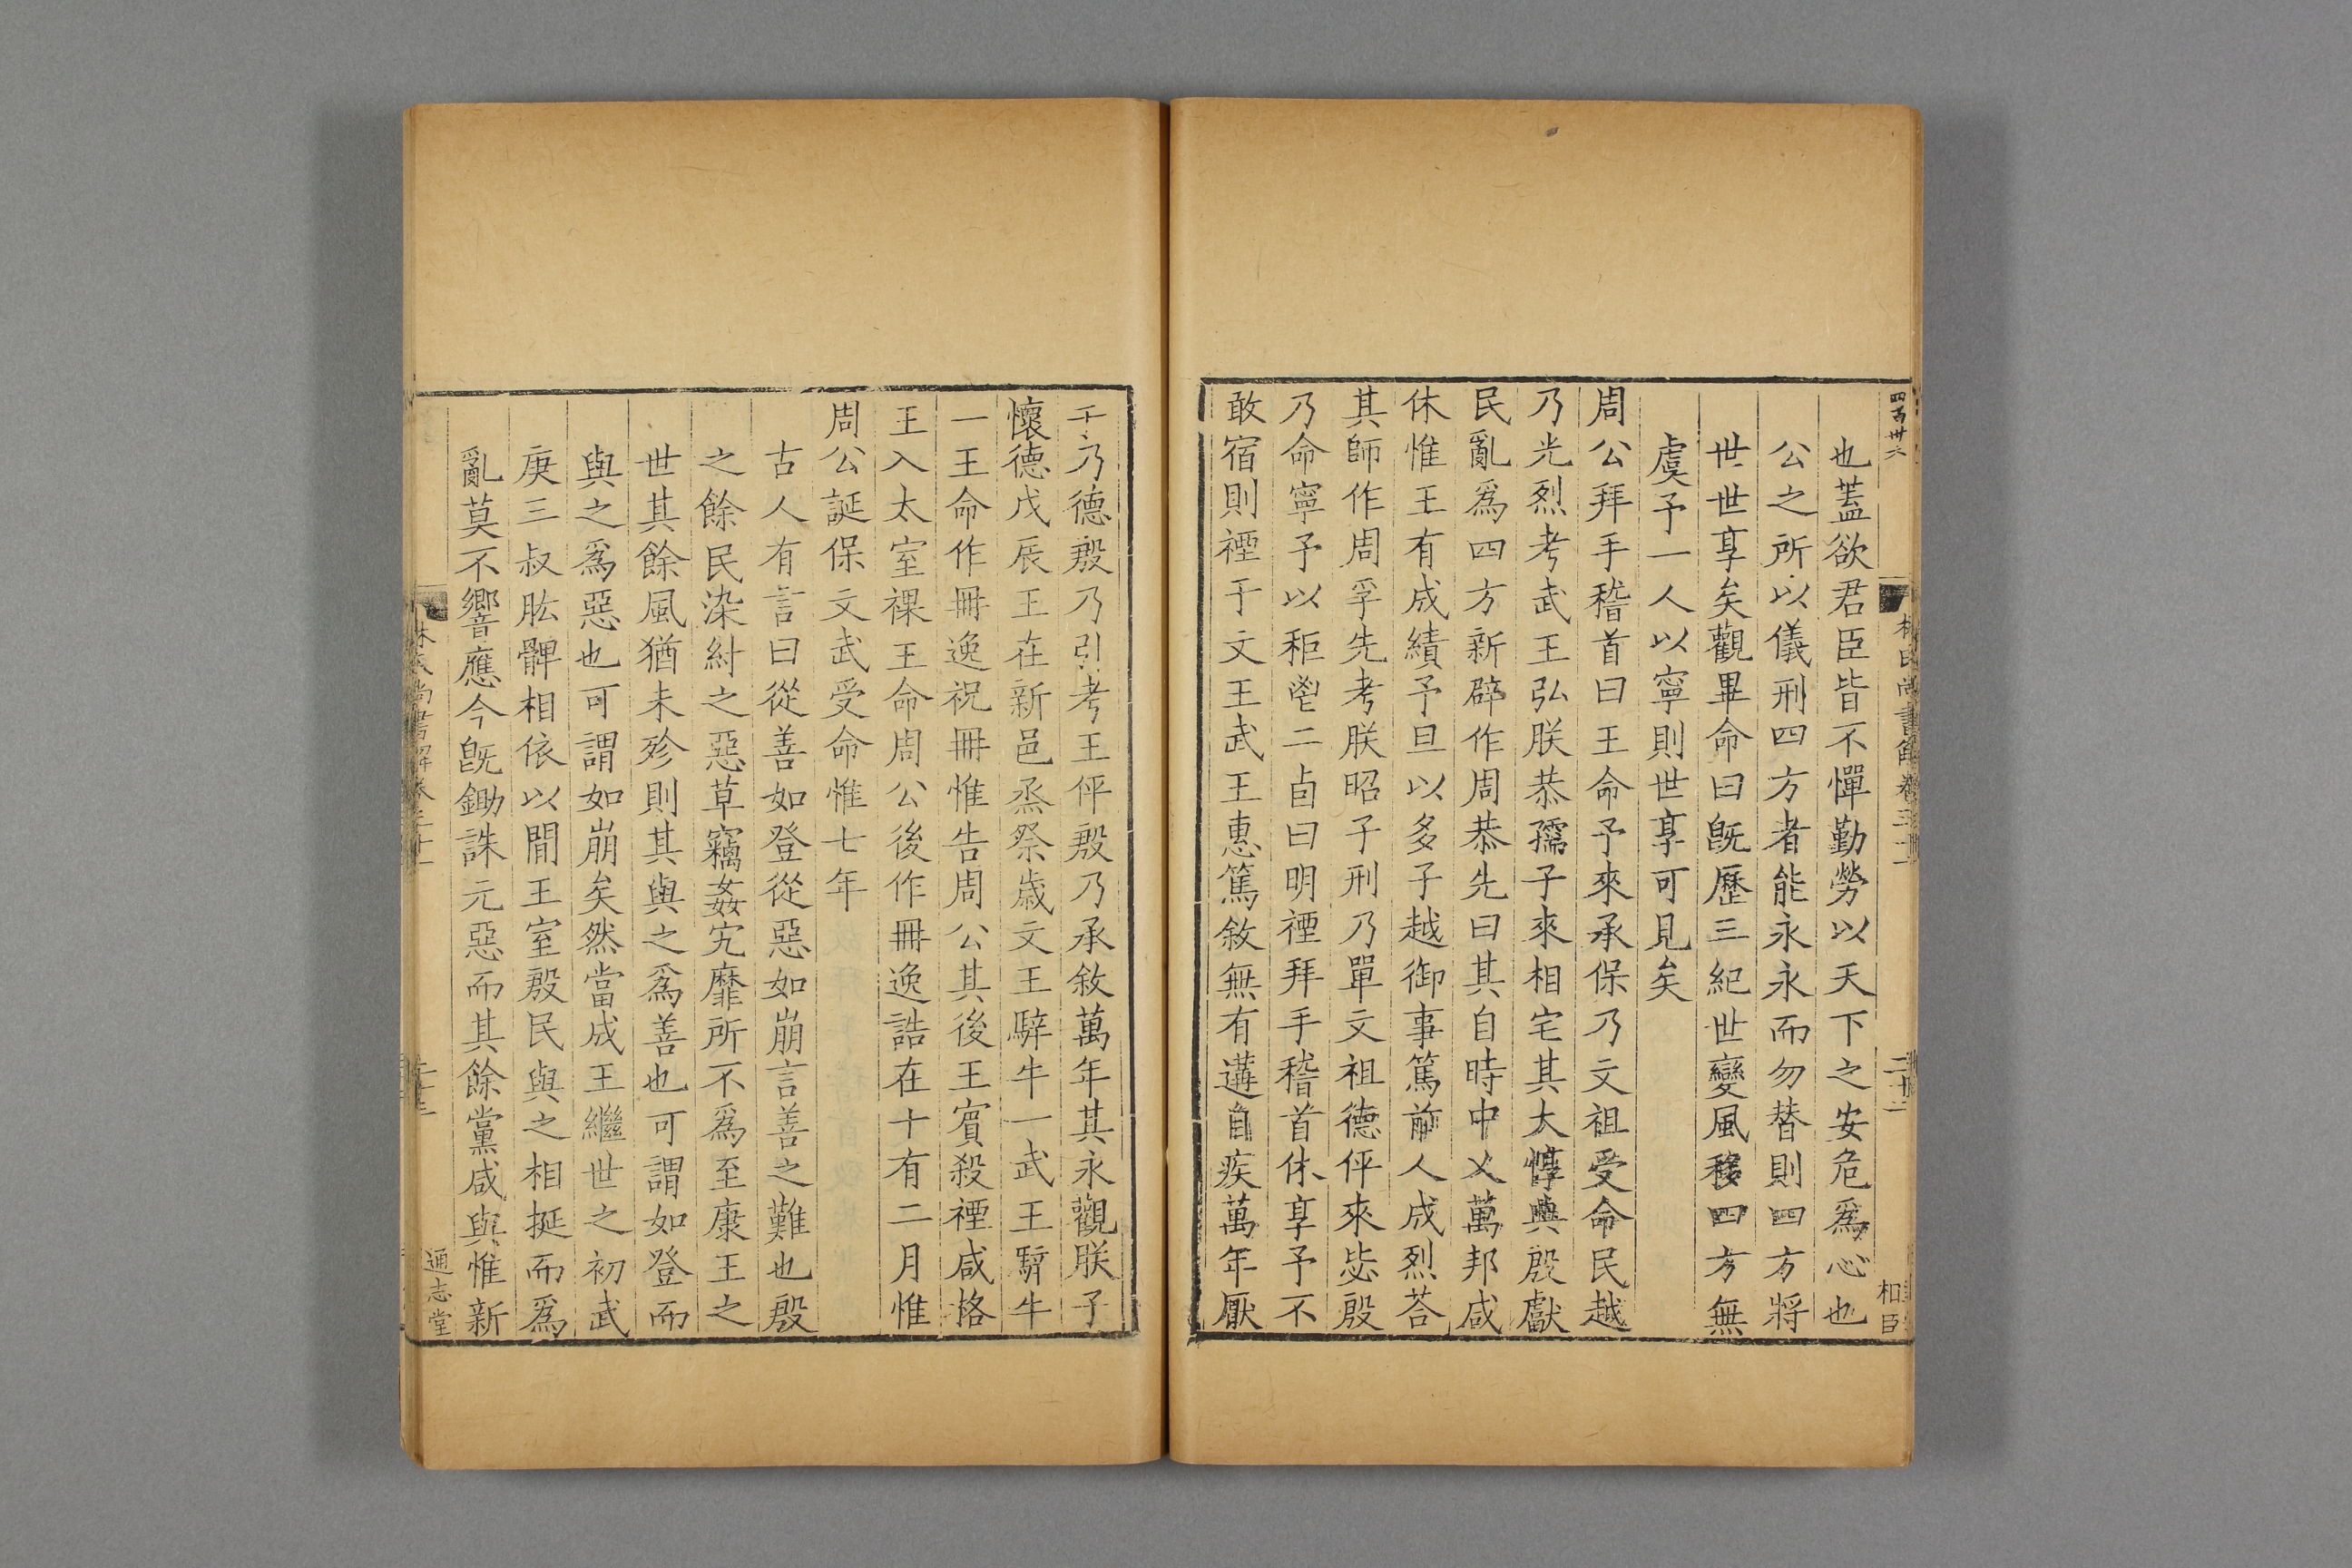 也蓋欲君臣皆不憚勤勞以天下之安危爲心也
公之所以儀刑四方者能永永而勿替則四方將
世世享矣觀畢命曰旣歷三紀世變風移四方無
虞予一人以寧則世享可見矣
周公拜手稽首曰王命予來承保乃文祖受命民越
乃光烈考武王弘朕恭孺子來相宅其大惇典殷獻
民亂爲四方新辟作周恭先曰其自時中乂萬邦咸
休惟王有成績予旦以多子越御事篤前人成烈荅
其師作周孚先考朕昭子刑乃單文祖德伻來毖殷
乃命寧予以秬鬯二卣曰明禋拜手稽首休享予不
敢宿則禋于文王武王惠篤敘無有遘自疾萬年厭
于乃德殷乃引考王伻殷乃承敘萬年其永觀朕子
懷德戊辰王在新邑烝祭歲文王騂牛一武王騂牛
一王命作冊逸祝冊惟告周公其後王賓殺禋咸格
王入太室祼王命周公後作冊逸誥在十有二月惟
周公誕保文武受命惟七年
古人有言曰從善如登從惡如崩言善之難也殷
之餘民染紂之惡草竊姦宄靡所不爲至康王之
世其餘風猶未殄則其與之爲善也可謂如登而
與之爲惡也可謂如崩矣然當成王繼世之初武
庚三叔肱髀相依以間王室殷民與之相挻而爲
亂莫不響應今旣鋤誅元惡而其餘黨咸與惟新
林氏尚書解卷三十一
通志堂